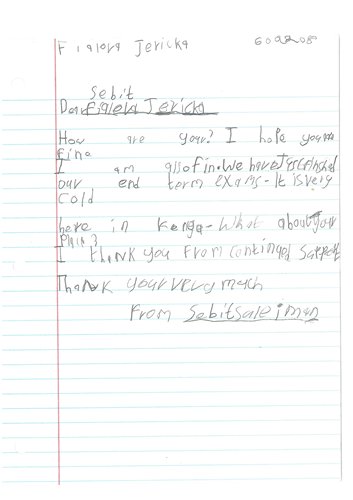 Fialora Jericka 6002080
Sebit
Dear Fialera Jericka
How are your? I hope youre
fine
I am also fin. We have Just finished
our end term exams - It is very
Cold
here in Kenya - What about your
Place?
I thank you from continged Support
Thank your very mach
From Sebitsaleiman